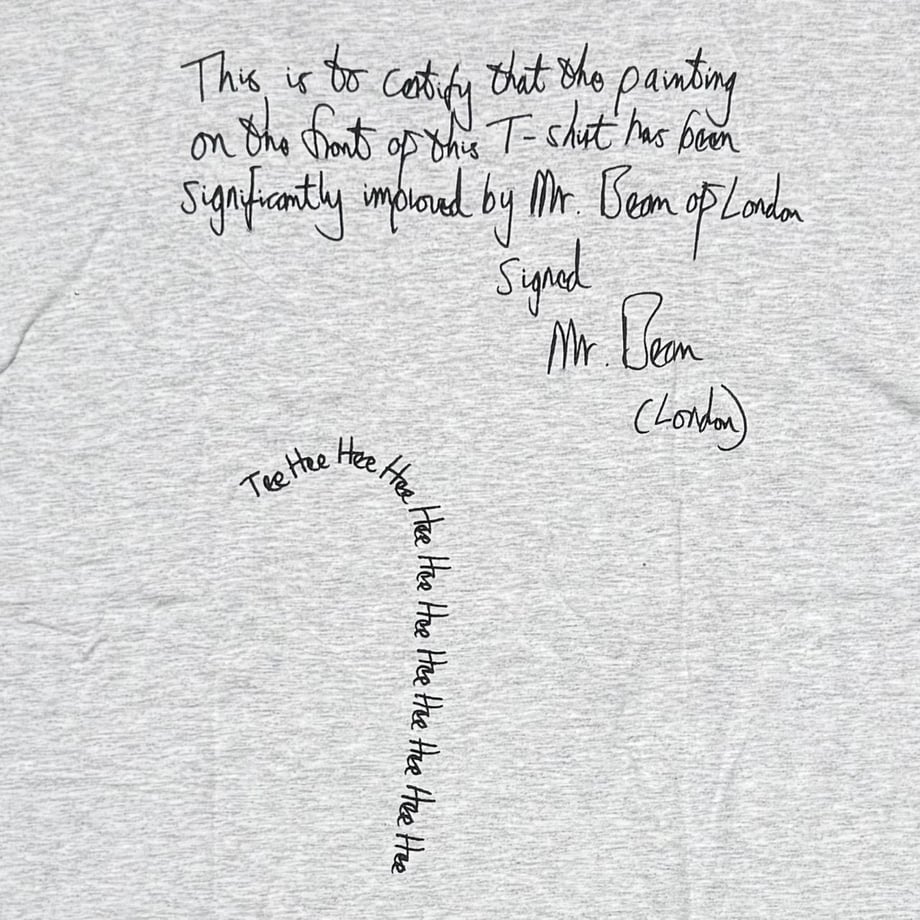 This is to certify that the painting
on the front of this T-shirt has been
significantly improved by Mr. Bean of London
Signed
Mr. Bean
(London)
Tee Hee Hee Hee Hee Hee Hee Hee Hee Hee Hee Hee